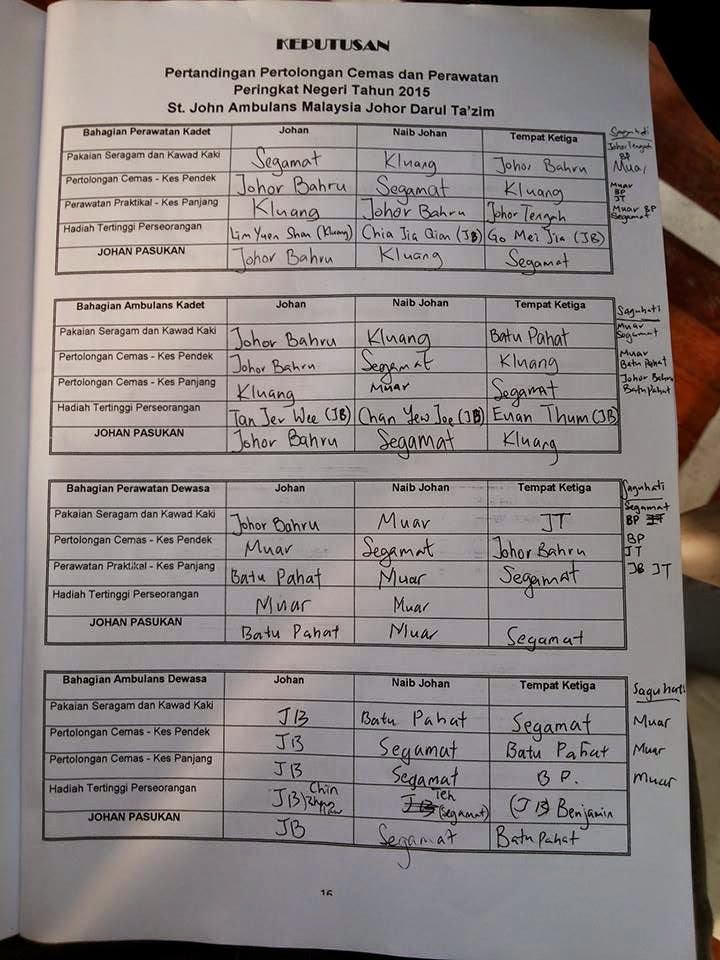 KEPUTUSAN
Pertandingan Pertolongan Cemas dan Perawatan
Peringkat Negeri Tahun 2015
St. John Ambulans Malaysia Johor Darul Ta'zim
Bahagian Perawatan Kadet Johan Naib Johan Tempat Ketiga Saguhati
Pakaian Seragam dan Kawad Kaki Segamat Kluang Johor Bahru Johor Tengah BP Muar
Pertolongan Cemas - Kes Pendek Johor Bahru Segamat Kluang Muar BP JT
Perawatan Praktikal - Kes Panjang Kluang Johor Bahru Johor Tengah Muar BP Segamat
Hadiah Tertinggi Perseorangan Lim Yuen Shan (Kluang) Chia Jia Qian (JB) Go Mei Jia (JB)
JOHAN PASUKAN Johor Bahru Kluang Segamat
Bahagian Ambulans Kadet Johan Naib Johan Tempat Ketiga Saguhati
Pakaian Seragam dan Kawad Kaki Johor Bahru Kluang Batu Pahat Muar Segamat
Pertolongan Cemas - Kes Pendek Johor Bahru Segamat Kluang Muar Batu Pahat
Pertolongan Cemas - Kes Panjang Kluang Muar Segamat Johor Bahru Batu Pahat
Hadiah Tertinggi Perseorangan Tan Jer Wee (JB) Chan Yew Joe (JB) Euan Thum (JB)
JOHAN PASUKAN Johor Bahru Segamat Kluang
Bahagian Perawatan Dewasa Johan Naib Johan Tempat Ketiga Saguhati
Pakaian Seragam dan Kawad Kaki Johor Bahru Muar JT Segamat BP
Pertolongan Cemas - Kes Pendek Muar Segamat Johor Bahru BP JT
Perawatan Praktikal - Kes Panjang Batu Pahat Muar Segamat JB JT
Hadiah Tertinggi Perseorangan Muar Muar
JOHAN PASUKAN Batu Pahat Muar Segamat
Bahagian Ambulans Dewasa Johan Naib Johan Tempat Ketiga Saguhati
Pakaian Seragam dan Kawad Kaki JB Batu Pahat Segamat Muar
Pertolongan Cemas - Kes Pendek JB Segamat Batu Pahat Muar
Pertolongan Cemas - Kes Panjang JB Segamat B P. Muar
Hadiah Tertinggi Perseorangan JB) Chin Teh (Segamat) (JB) Benjamin
JOHAN PASUKAN JB Segamat Batu Pahat